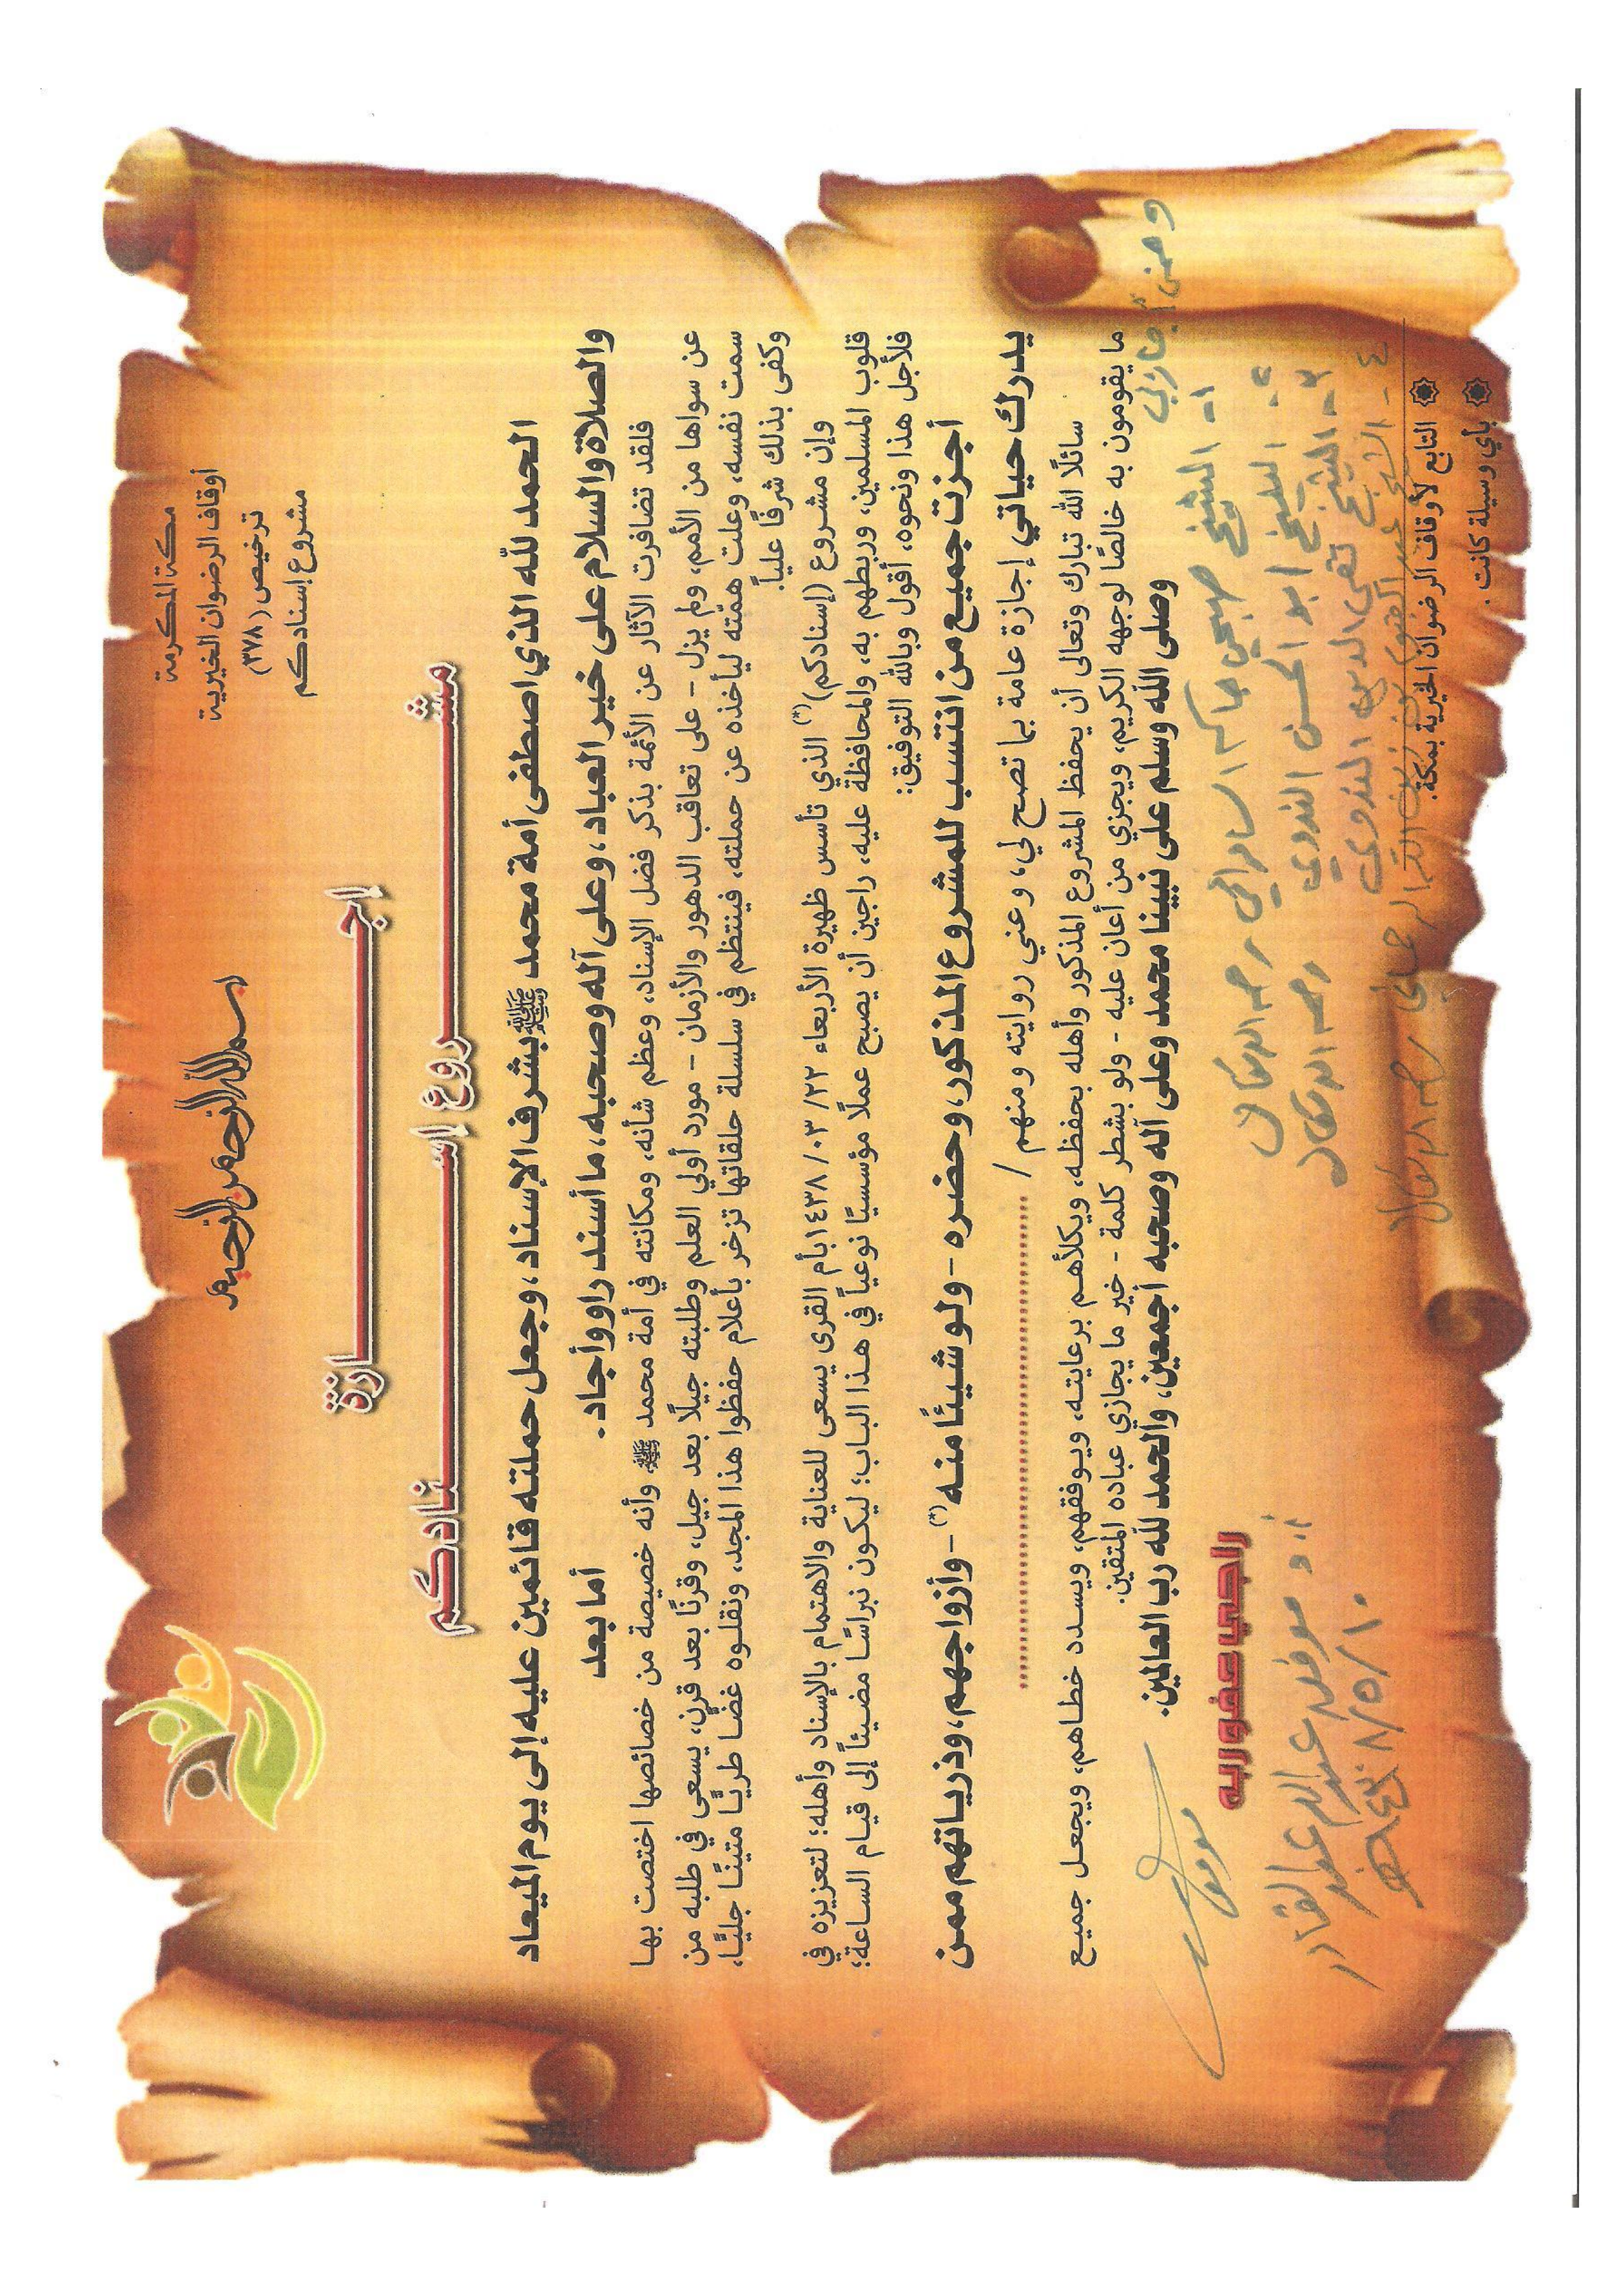 بسم الله الرحمن الرحيم
مكة المكرمة
أوقاف الرضوان الخيرية
ترخيص (٣٧٨)
مشروع إسنادكم
إجــازة
مشــروع إســنادكم
الحمد لله الذي اصطفى أمة محمد ﷺ بشرف الإسناد، وجعل حملته قائمين عليه إلى يوم الميعاد
والصلاة والسلام على خير العباد، وعلى آله وصحبه، ما أسند راو وأجاد. أما بعد
فلقد تضافرت الآثار عن الأئمة بذكر فضل الإسناد، وعظم شأنه، ومكانته في أمة محمد ﷺ وأنه خصيصة من خصائصها اختصت بها
عن سواها من الأمم، ولم يزل - على تعاقب الدهور والأزمان - مورد أولي العلم وطلبته جيلًا بعد جيل، وقرنًا بعد قرن، يسعى في طلبه من
سمت نفسه، وعلت همّته ليأخذه عن حملته، فينتظم في سلسلة حلقاتها تزخر بأعلام حفظوا هذا المجد، ونقلوه غضًا طريًا متينًا جليًا،
وكفى بذلك شرفًا علياً.
وإن مشروع (إسنادكم)(*) الذي تأسس ظهيرة الأربعاء ٢٢/ ٠٣/ ١٤٣٨ بأم القرى يسعى للعناية والاهتمام بالإسناد وأهله؛ لتعزيزه في
قلوب المسلمين، وربطهم به، والمحافظة عليه، راجين أن يصبح عملًا مؤسسيًا نوعياً في هذا الباب؛ ليكون نبراسًا مضيئاً إلى قيام الساعة؛
فلأجل هذا ونحوه، أقول وبالله التوفيق:
أجزت جميع من انتسب للمشروع المذكور، وحضره - ولو شيئًا منه(*) - وأزواجهم، وذرياتهم ممن
يدرك حياتي إجازة عامة بما تصح لي، وعني روايته ومنهم / ......................
سائلًا الله تبارك وتعالى أن يحفظ المشروع المذكور وأهله بحفظه، ويكلأهم برعايته، ويوفقهم، ويسدد خطاهم، ويجعل جميع
ما يقومون به خالصًا لوجهه الكريم، ويجزي من أعان عليه - ولو بشطر كلمة - خير ما يجازي عباده المتقين.
وصلى الله وسلم على نبينا محمد وعلى آله وصحبه أجمعين، والحمد لله رب العالمين.
وممن أجازني
١- الشيخ صبحي جاسم السامرائي رحمه الله تعالى
٢- الشيخ أبو الحسن الندوي رحمه الله تعالى
٣- الشيخ تقي الدين الندوي
٤- الشيخ عبد الفتوح رحمه الله تعالى
راجي عفو ربه
أ. د موفق عبد الله عبد القادر
٨/٥/١٠
التابع لأوقاف الرضوان الخيرية بمكة.
بأي وسيلة كانت.